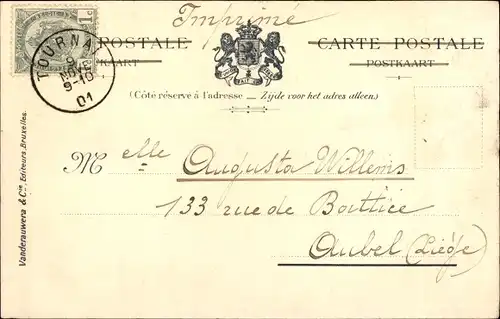 Imprimé
1c
POSTALE
KAART
CARTE POSTALE
POSTKAART
TOURNAI
9
NOVE
9-10
01
(Côté réservé à l'adresse _ Zijde voor het adres alleen.)
Melle Augusta Willems
133 rue de Battice
Aubel (Liége)
Vanderauwera & Cie, Editeurs. Bruxelles.